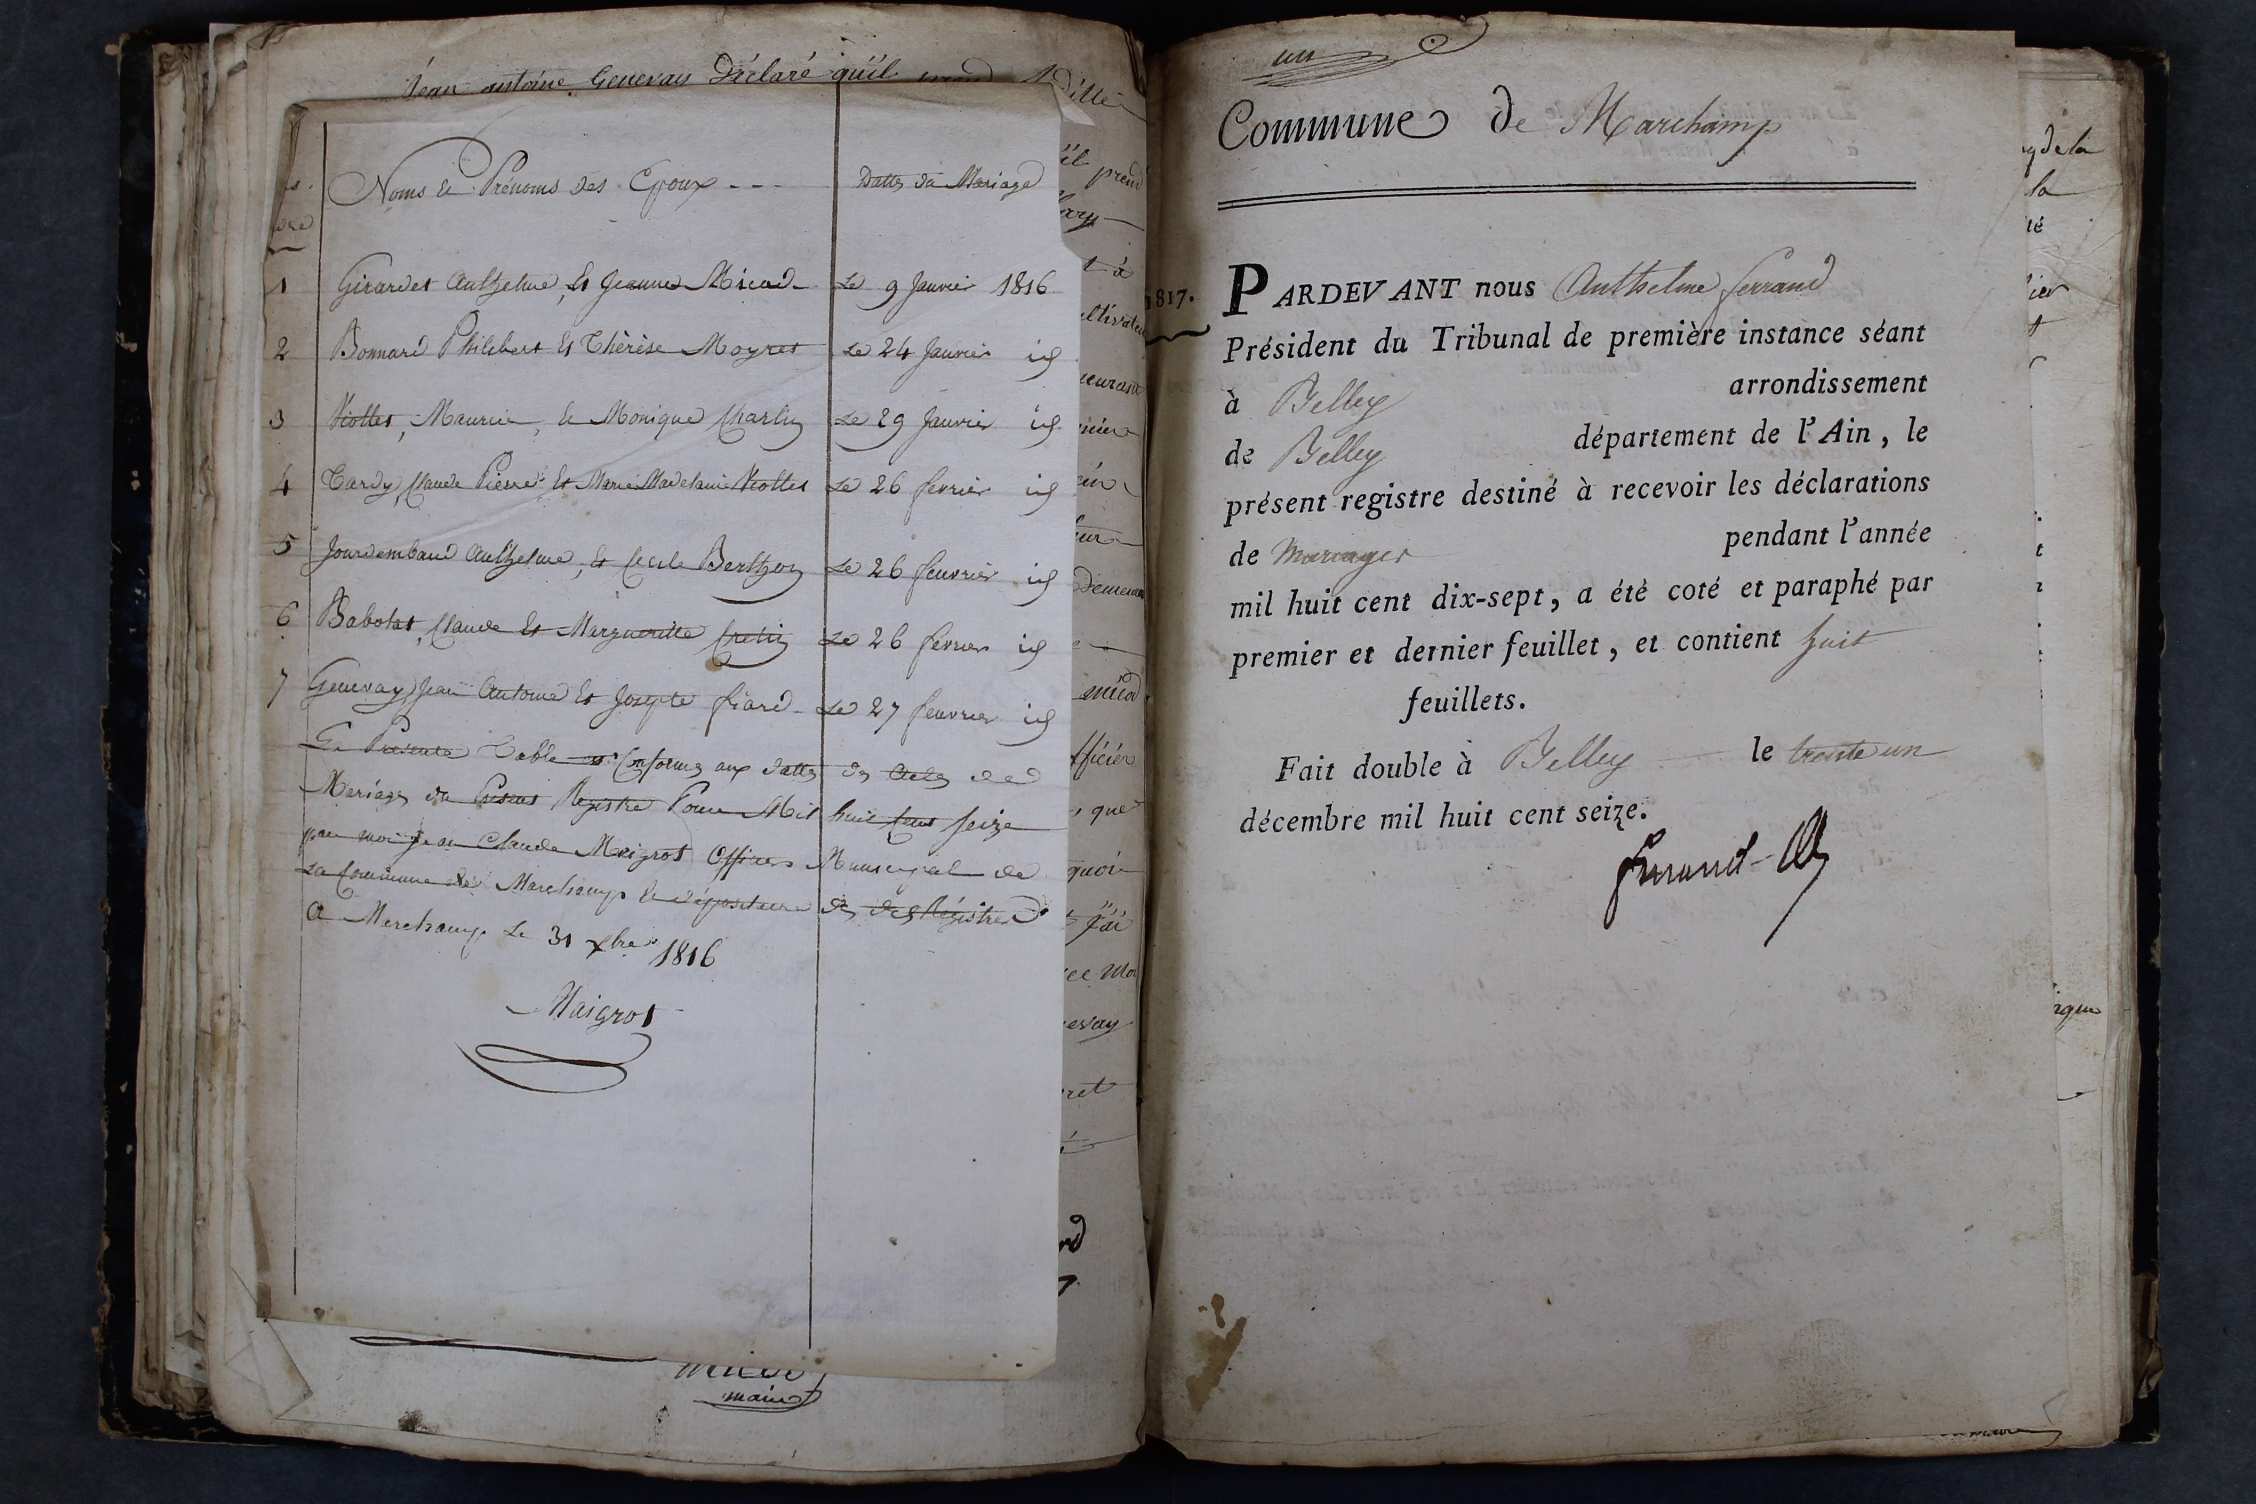 Jean antoine Genevay Déclaré qu'il prend
Noms et Prénoms des Epoux - - - Dattes du Mariage
1 Girardet Anthelme, et Jeanne Micod Le 9 Janvier 1816
2 Bonnard Philibert et Thérèse Moyret Le 24 Janvier id
3 Viollet, Maurice, et Monique Charlin Le 29 Janvier id
4 Tardy, Claude Pierre et Marie Madelaine Viollet Le 26 fevrier id
5 Jourdembaud Anthelme, et Cecile Berthon Le 26 feuvrier id
6 Babolat, Claude et Margueritte Cretin Le 26 fevrier id
7 Genevay, Jean Antoine et Josepte fiard Le 27 feuvrier id
La Presente Table est Conforme aux dattes des Actes de
Mariages du Présent Registre Pour Mil huit Cent seize
par moi Jean Claude Maigrot Officier Municipal de
la Commune de Marchamp et dépositaire des Régistres
A Marchamp Le 31 xbre 1816
Maigrot
maire
il prend
t à
ultivateur
demeurant
micod
officier
que
quoi
j'ai
ce moi
evay
ret
un
Commune de Marchamp
1817.
PARDEVANT nous Anthelme ferrand
Président du Tribunal de première instance séant
à Belley arrondissement
de Belley département de l'Ain, le
présent registre destiné à recevoir les déclarations
de mariages pendant l'année
mil huit cent dix-sept, a été coté et paraphé par
premier et dernier feuillet, et contient huit
feuillets.
Fait double à Belley le trente un
décembre mil huit cent seize.
ferrand
de la
la